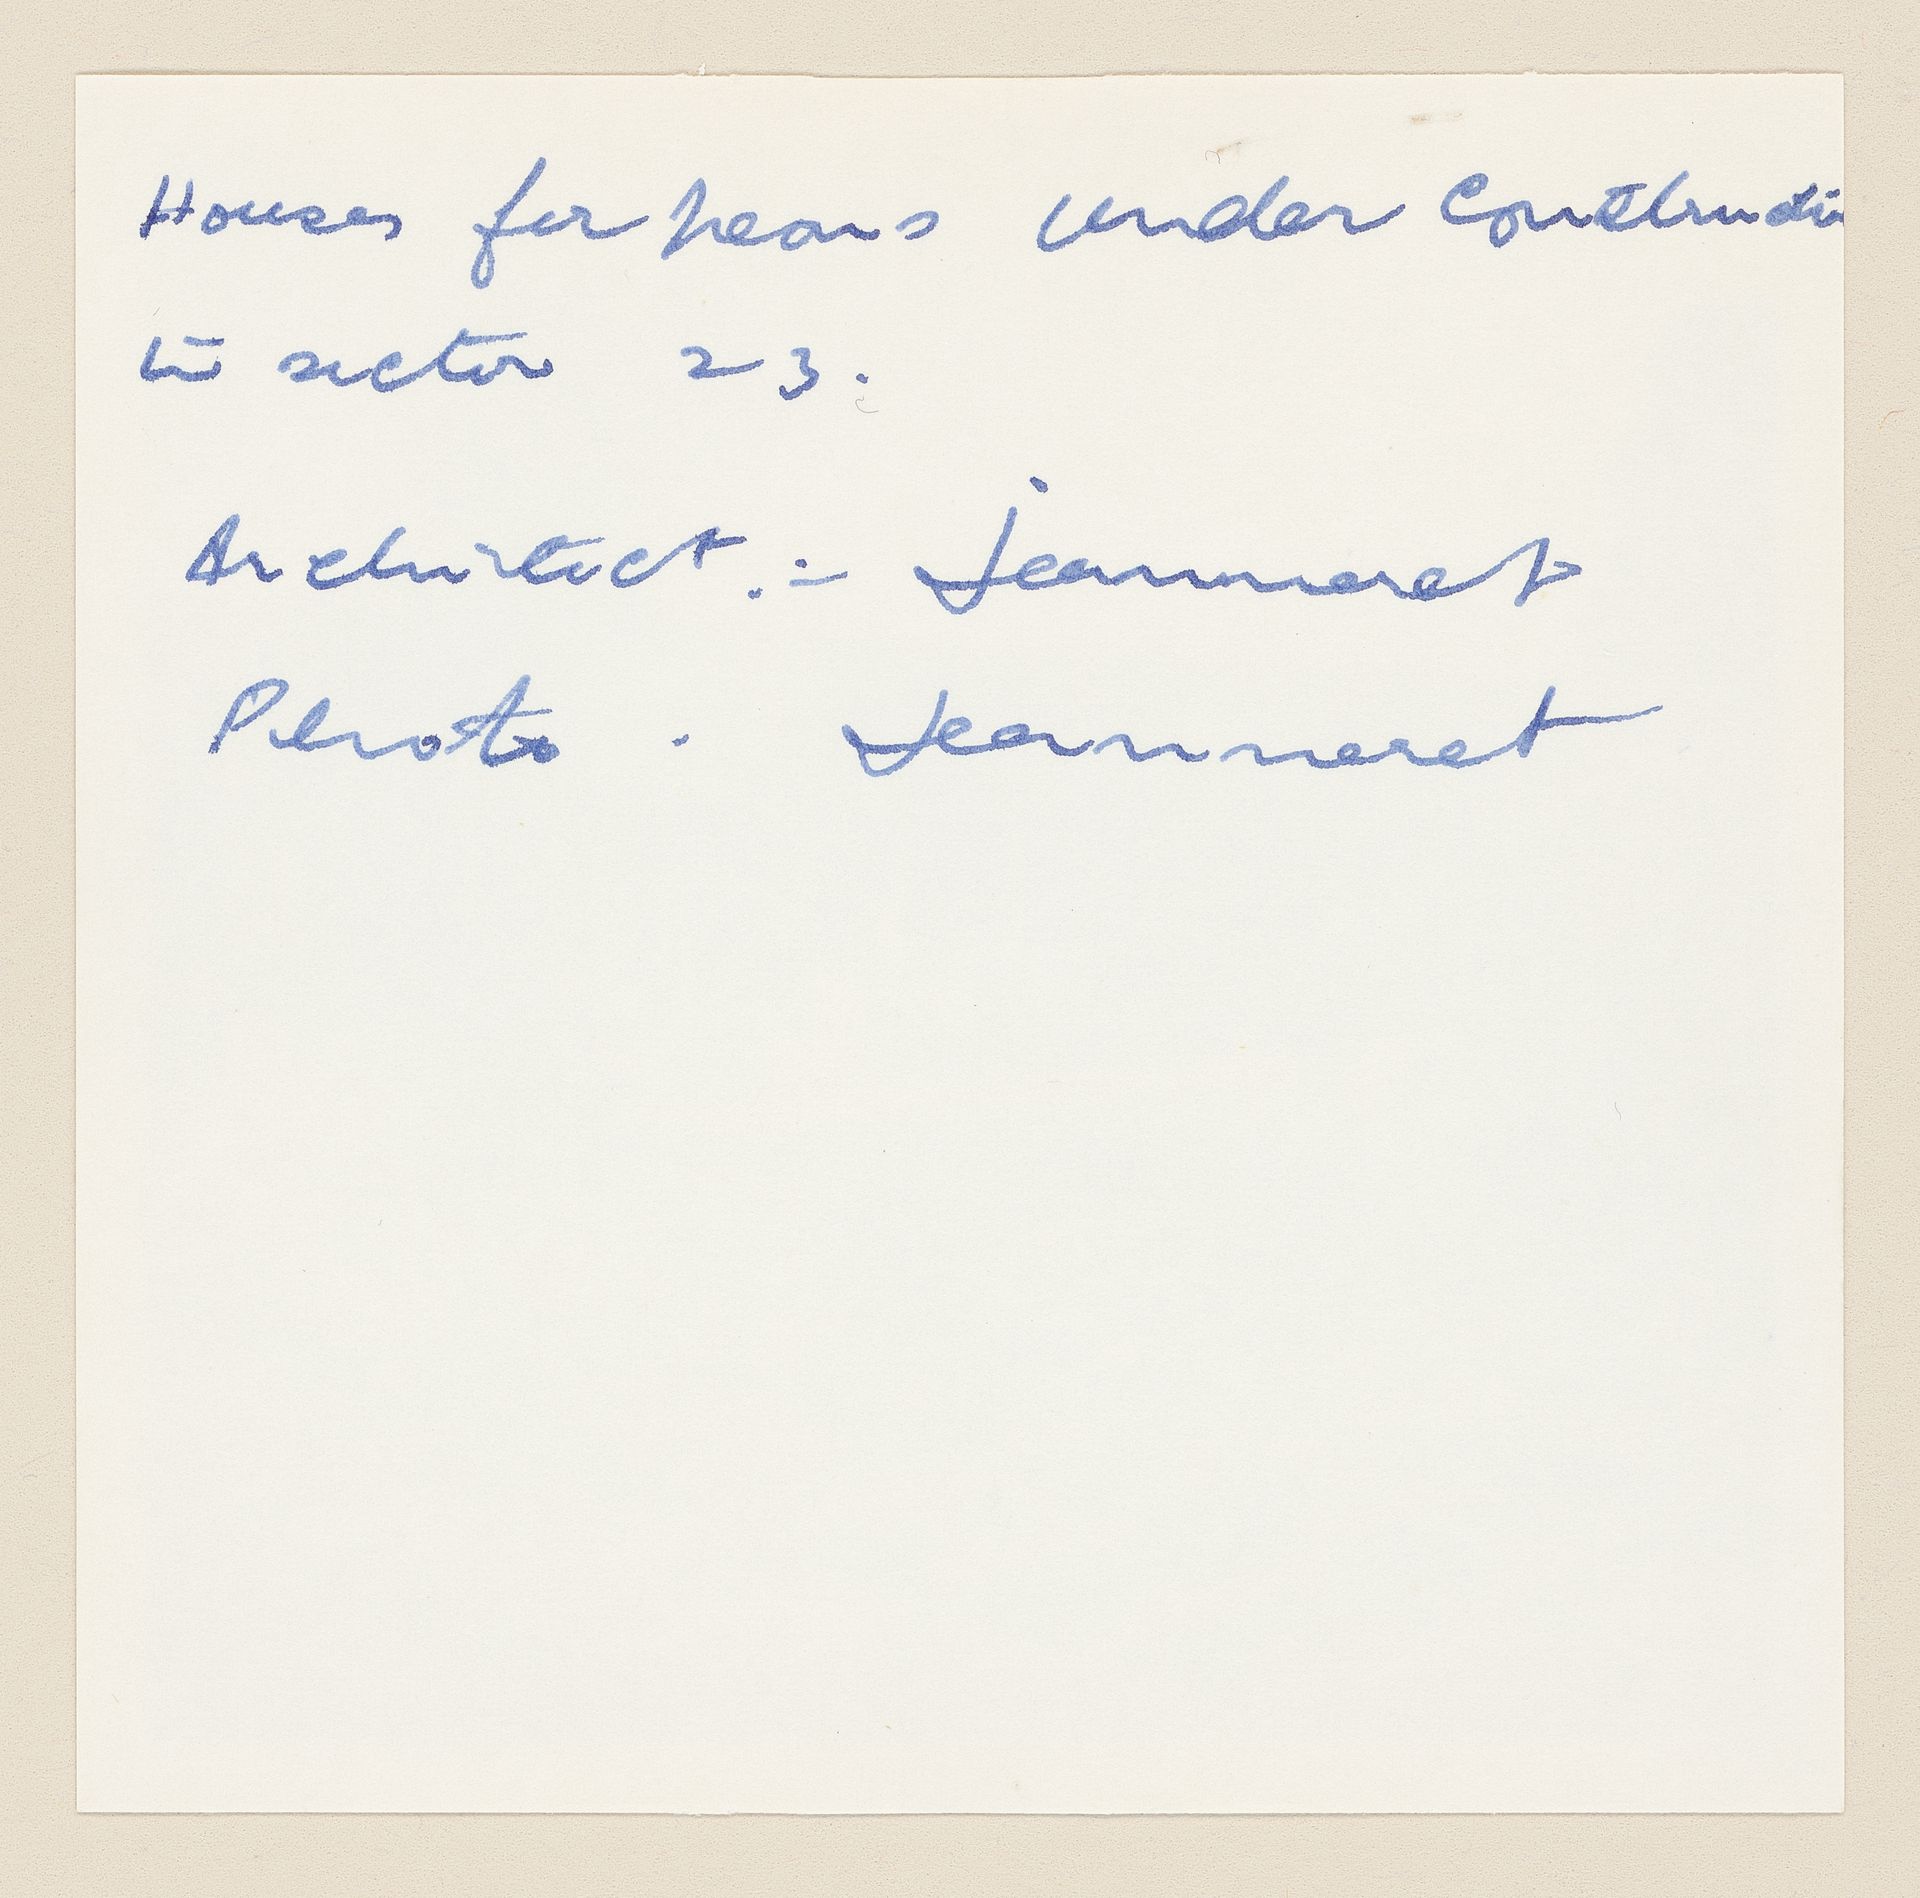 Houses for peons under Constructi
in sector 23.
Architect. :- Jeanneret
Photo . Jeanneret